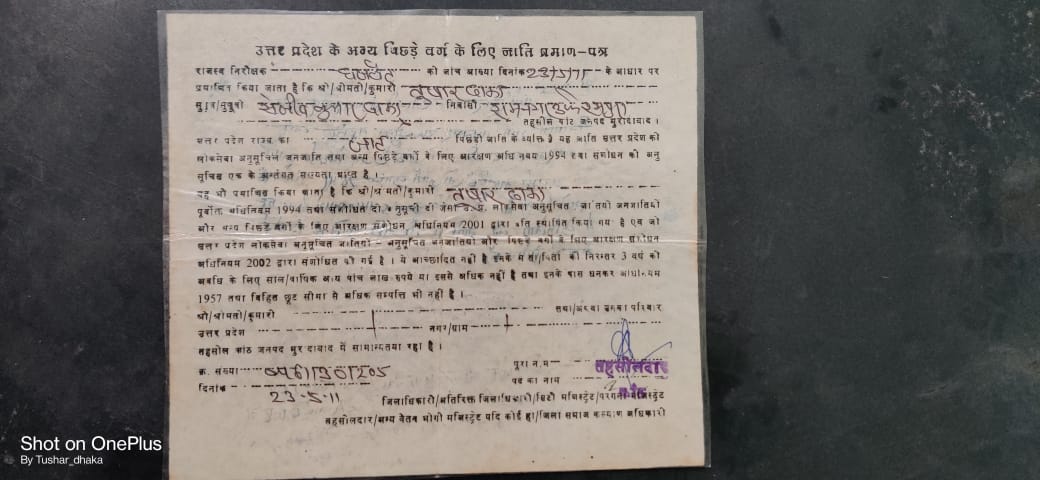 उत्तर प्रदेश के अन्य पिछड़े वर्ग के लिए जाति प्रमाण-पत्र
राजस्व निरीक्षक की जांच आख्या दिनांक 23/5/11 के आधार पर
प्रमाणित किया जाता है कि श्री/श्रीमती/कुमारी तुषार ढाका
सुपुत्र/सुपुत्री निवासी
तहसील कांठ जनपद मुरादाबाद ।
उत्तर प्रदेश राज्य का जाट पिछड़ी जाति के व्यक्ति है यह जाति उत्तर प्रदेश की
लोकसेवा अनुसूचित जनजाति तथा अन्य पिछड़े वर्गों के लिए आरक्षण अधिनियम 1994 तथा संशोधन की अनु
सूचिय एक के अन्तर्गत मान्यता प्राप्त है ।
यह भी प्रमाणित किया जाता है कि श्री/श्रीमती/कुमारी तुषार ढाका
पूर्वोक्त अधिनियम 1994 तथा संशोधित की अनुसूची दो जैसा उ.प्र. लोकसेवा अनुसूचित जातियों जनजातियों
और अन्य पिछड़े वर्गों के लिए आरक्षण संशोधन अधिनियम 2001 द्वारा प्रति स्थापित किया गया है एवं जो
उत्तर प्रदेश लोकसेवा अनुसूचित जातियों - अनुसूचित जनजातियों और पिछड़े वर्गों के लिए आरक्षण संशोधन
अधिनियम 2002 द्वारा संशोधित की गई है । ये आच्छादित नहीं है इनके माता/पिता की निरन्तर 3 वर्ष की
अवधि के लिए सालाना/वार्षिक आय पांच लाख रुपये या इससे अधिक नहीं है तथा इनके पास धनकर अधिनियम
1957 तथा विहित छूट सीमा से अधिक सम्पत्ति भी नहीं है ।
श्री/श्रीमती/कुमारी तथा/अथवा उनका परिवार
उत्तर प्रदेश नगर/ग्राम
तहसील कांठ जनपद मुरादाबाद में सामान्यतया रहा है ।
क्र. संख्या पूरा नाम तहसीलदार
दिनांक 23-5-11 पद का नाम कांठ
जिलाधिकारी/अतिरिक्त जिलाधिकारी/सिटी मजिस्ट्रेट/परगना मजिस्ट्रेट
तहसीलदार/अन्य वेतन भोगी मजिस्ट्रेट यदि कोई हो/जिला समाज कल्याण अधिकारी
Shot on OnePlus
By Tushar_dhaka